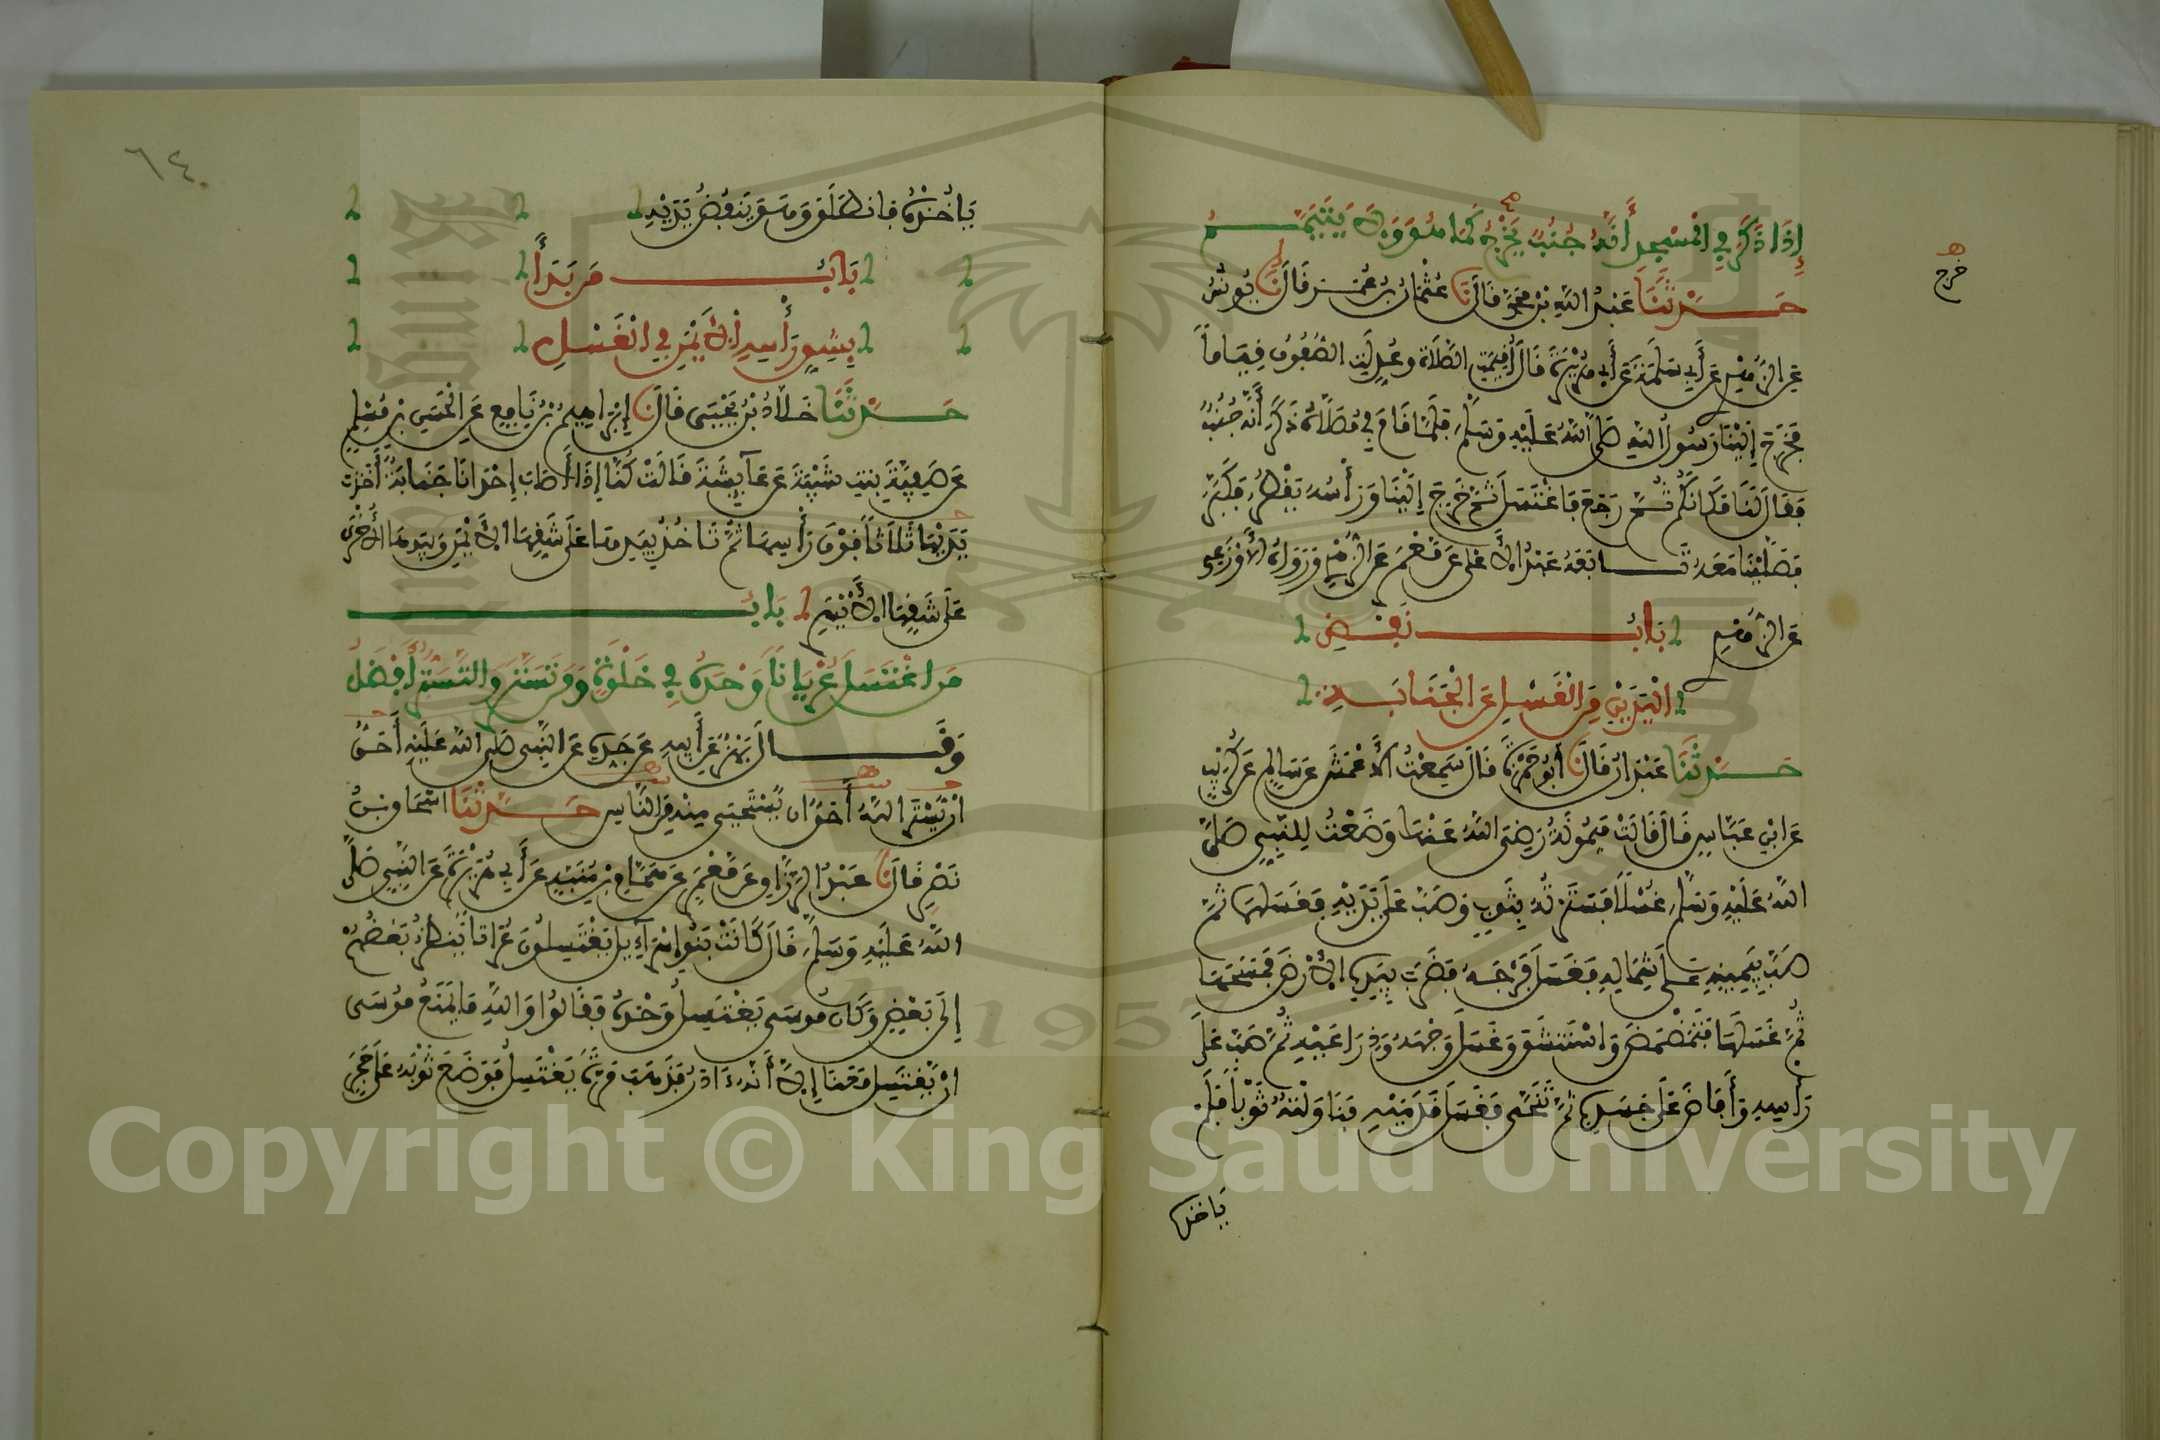 إِذَا ذَكَرَ فِي الْمَسْجِدِ أَنَّهُ جُنُبٌ يَخْرُجُ كَمَا هُوَ وَلَا يَتَيَمَّمُ
خرج
حَدَّثَنَا عَبْدُ اللَّهِ بْنُ مُحَمَّدٍ قَالَ نَا عُثْمَانُ بْنُ عُمَرَ قَالَ نَا يُونُسُ
عَنِ الزُّهْرِيِّ عَنْ أَبِي سَلَمَةَ عَنْ أَبِي هُرَيْرَةَ قَالَ أُقِيمَتِ الصَّلَاةُ وَعُدِّلَتِ الصُّفُوفُ قِيَاماً
فَخَرَجَ إِلَيْنَا رَسُولُ اللَّهِ صَلَّى اللَّهُ عَلَيْهِ وَسَلَّمَ فَلَمَّا قَامَ فِي مُصَلَّاهُ ذَكَرَ أَنَّهُ جُنُبٌ
فَقَالَ لَنَا مَكَانَكُمْ ثُمَّ رَجَعَ فَاغْتَسَلَ ثُمَّ خَرَجَ إِلَيْنَا وَرَأْسُهُ يَقْطُرُ فَكَبَّرَ
فَصَلَّيْنَا مَعَهُ تَابَعَهُ عَبْدُ الْأَعْلَى عَنْ مَعْمَرٍ عَنِ الزُّهْرِيِّ وَرَوَاهُ الْأَوْزَاعِي
عَنِ الزُّهْرِيِّ بَابُ نَفْضِ
الْيَدَيْنِ مِنَ الْغُسْلِ عَنِ الْجَنَابَةِ
حَدَّثَنَا عَبْدَانُ قَالَ نَا أَبُو حَمْزَةَ قَالَ سَمِعْتُ الْأَعْمَشَ عَنْ سَالِمٍ عَنْ كُرَيْبٍ
عَنِ ابْنِ عَبَّاسٍ قَالَ قَالَتْ مَيْمُونَةُ رَضِيَ اللَّهُ عَنْهَا وَضَعْتُ لِلنَّبِيِّ صَلَّى
اللَّهُ عَلَيْهِ وَسَلَّمَ غُسْلاً فَسَتَرْتُهُ بِثَوْبٍ وَصَبَّ عَلَى يَدَيْهِ فَغَسَلَهَا ثُمَّ
صَبَّ بِيَمِينِهِ عَلَى شِمَالِهِ فَغَسَلَ فَرْجَهُ فَضَرَبَ بِيَدِهِ الْأَرْضَ فَمَسَحَهَا
ثُمَّ غَسَلَهَا فَتَمَضْمَضَ وَاسْتَنْشَقَ وَغَسَلَ وَجْهَهُ وَذِرَاعَيْهِ ثُمَّ صَبَّ عَلَى
رَأْسِهِ وَأَفَاضَ عَلَى جَسَدِهِ ثُمَّ تَنَحَّى فَغَسَلَ قَدَمَيْهِ فَنَاوَلْتُهُ ثَوْباً فَلَمْ
يَاخذه
٦٤
يَاخُذْهُ فَانْطَلَقَ وَهُوَ يَنْفُضُ يَدَيْهِ
بَابُ مَنْ بَدَأَ
بِشِقِّ رَأْسِهِ الْأَيْمَنِ فِي الْغُسْلِ
حَدَّثَنَا خَلَّادُ بْنُ يَحْيَى قَالَ نَا إِبْرَاهِيمُ بْنُ نَافِعٍ عَنِ الْحَسَنِ بْنِ مُسْلِمٍ
عَنْ صَفِيَّةَ بِنْتِ شَيْبَةَ عَنْ عَائِشَةَ قَالَتْ كُنَّا إِذَا أَصَابَ إِحْدَانَا جَنَابَةٌ أَخَذَتْ
بِيَدَيْهَا ثَلَاثاً فَوْقَ رَأْسِهَا ثُمَّ تَاخُذُ بِيَدِهَا عَلَى شِقِّهَا الْأَيْمَنِ وَبِيَدِهَا الْأُخْرَى
عَلَى شِقِّهَا الْأَيْسَرِ بَابُ
مَنِ اغْتَسَلَ عُرْيَاناً وَحْدَهُ فِي خَلْوَةٍ وَمَنْ تَسَتَّرَ وَالتَّسَتُّرُ أَفْضَلُ
وَقَالَ بَهْزٌ عَنْ أَبِيهِ عَنْ جَدِّهِ عَنِ النَّبِيِّ صَلَّى اللَّهُ عَلَيْهِ أَحَقُّ
أَنْ يُسْتَحْيَى مِنْهُ مِنَ النَّاسِ حَدَّثَنَا إِسْحَاقُ بْنُ
نَصْرٍ قَالَ نَا عَبْدُ الرَّزَّاقِ عَنْ مَعْمَرٍ عَنْ هَمَّامِ بْنِ مُنَبِّهٍ عَنْ أَبِي هُرَيْرَةَ عَنِ النَّبِيِّ صَلَّى
اللَّهُ عَلَيْهِ وَسَلَّمَ قَالَ كَانَتْ بَنُو إِسْرَاءِيلَ يَغْتَسِلُونَ عُرَاةً يَنْظُرُ بَعْضُهُمْ
إِلَى بَعْضٍ وَكَانَ مُوسَى يَغْتَسِلُ وَحْدَهُ فَقَالُوا وَاللَّهِ مَا يَمْنَعُ مُوسَى
أَنْ يَغْتَسِلَ مَعَنَا إِلَّا أَنَّهُ ءَادَرُ فَذَهَبَ مَرَّةً يَغْتَسِلُ فَوَضَعَ ثَوْبَهُ عَلَى حَجَرٍ
Copyright © King Saud University
1957